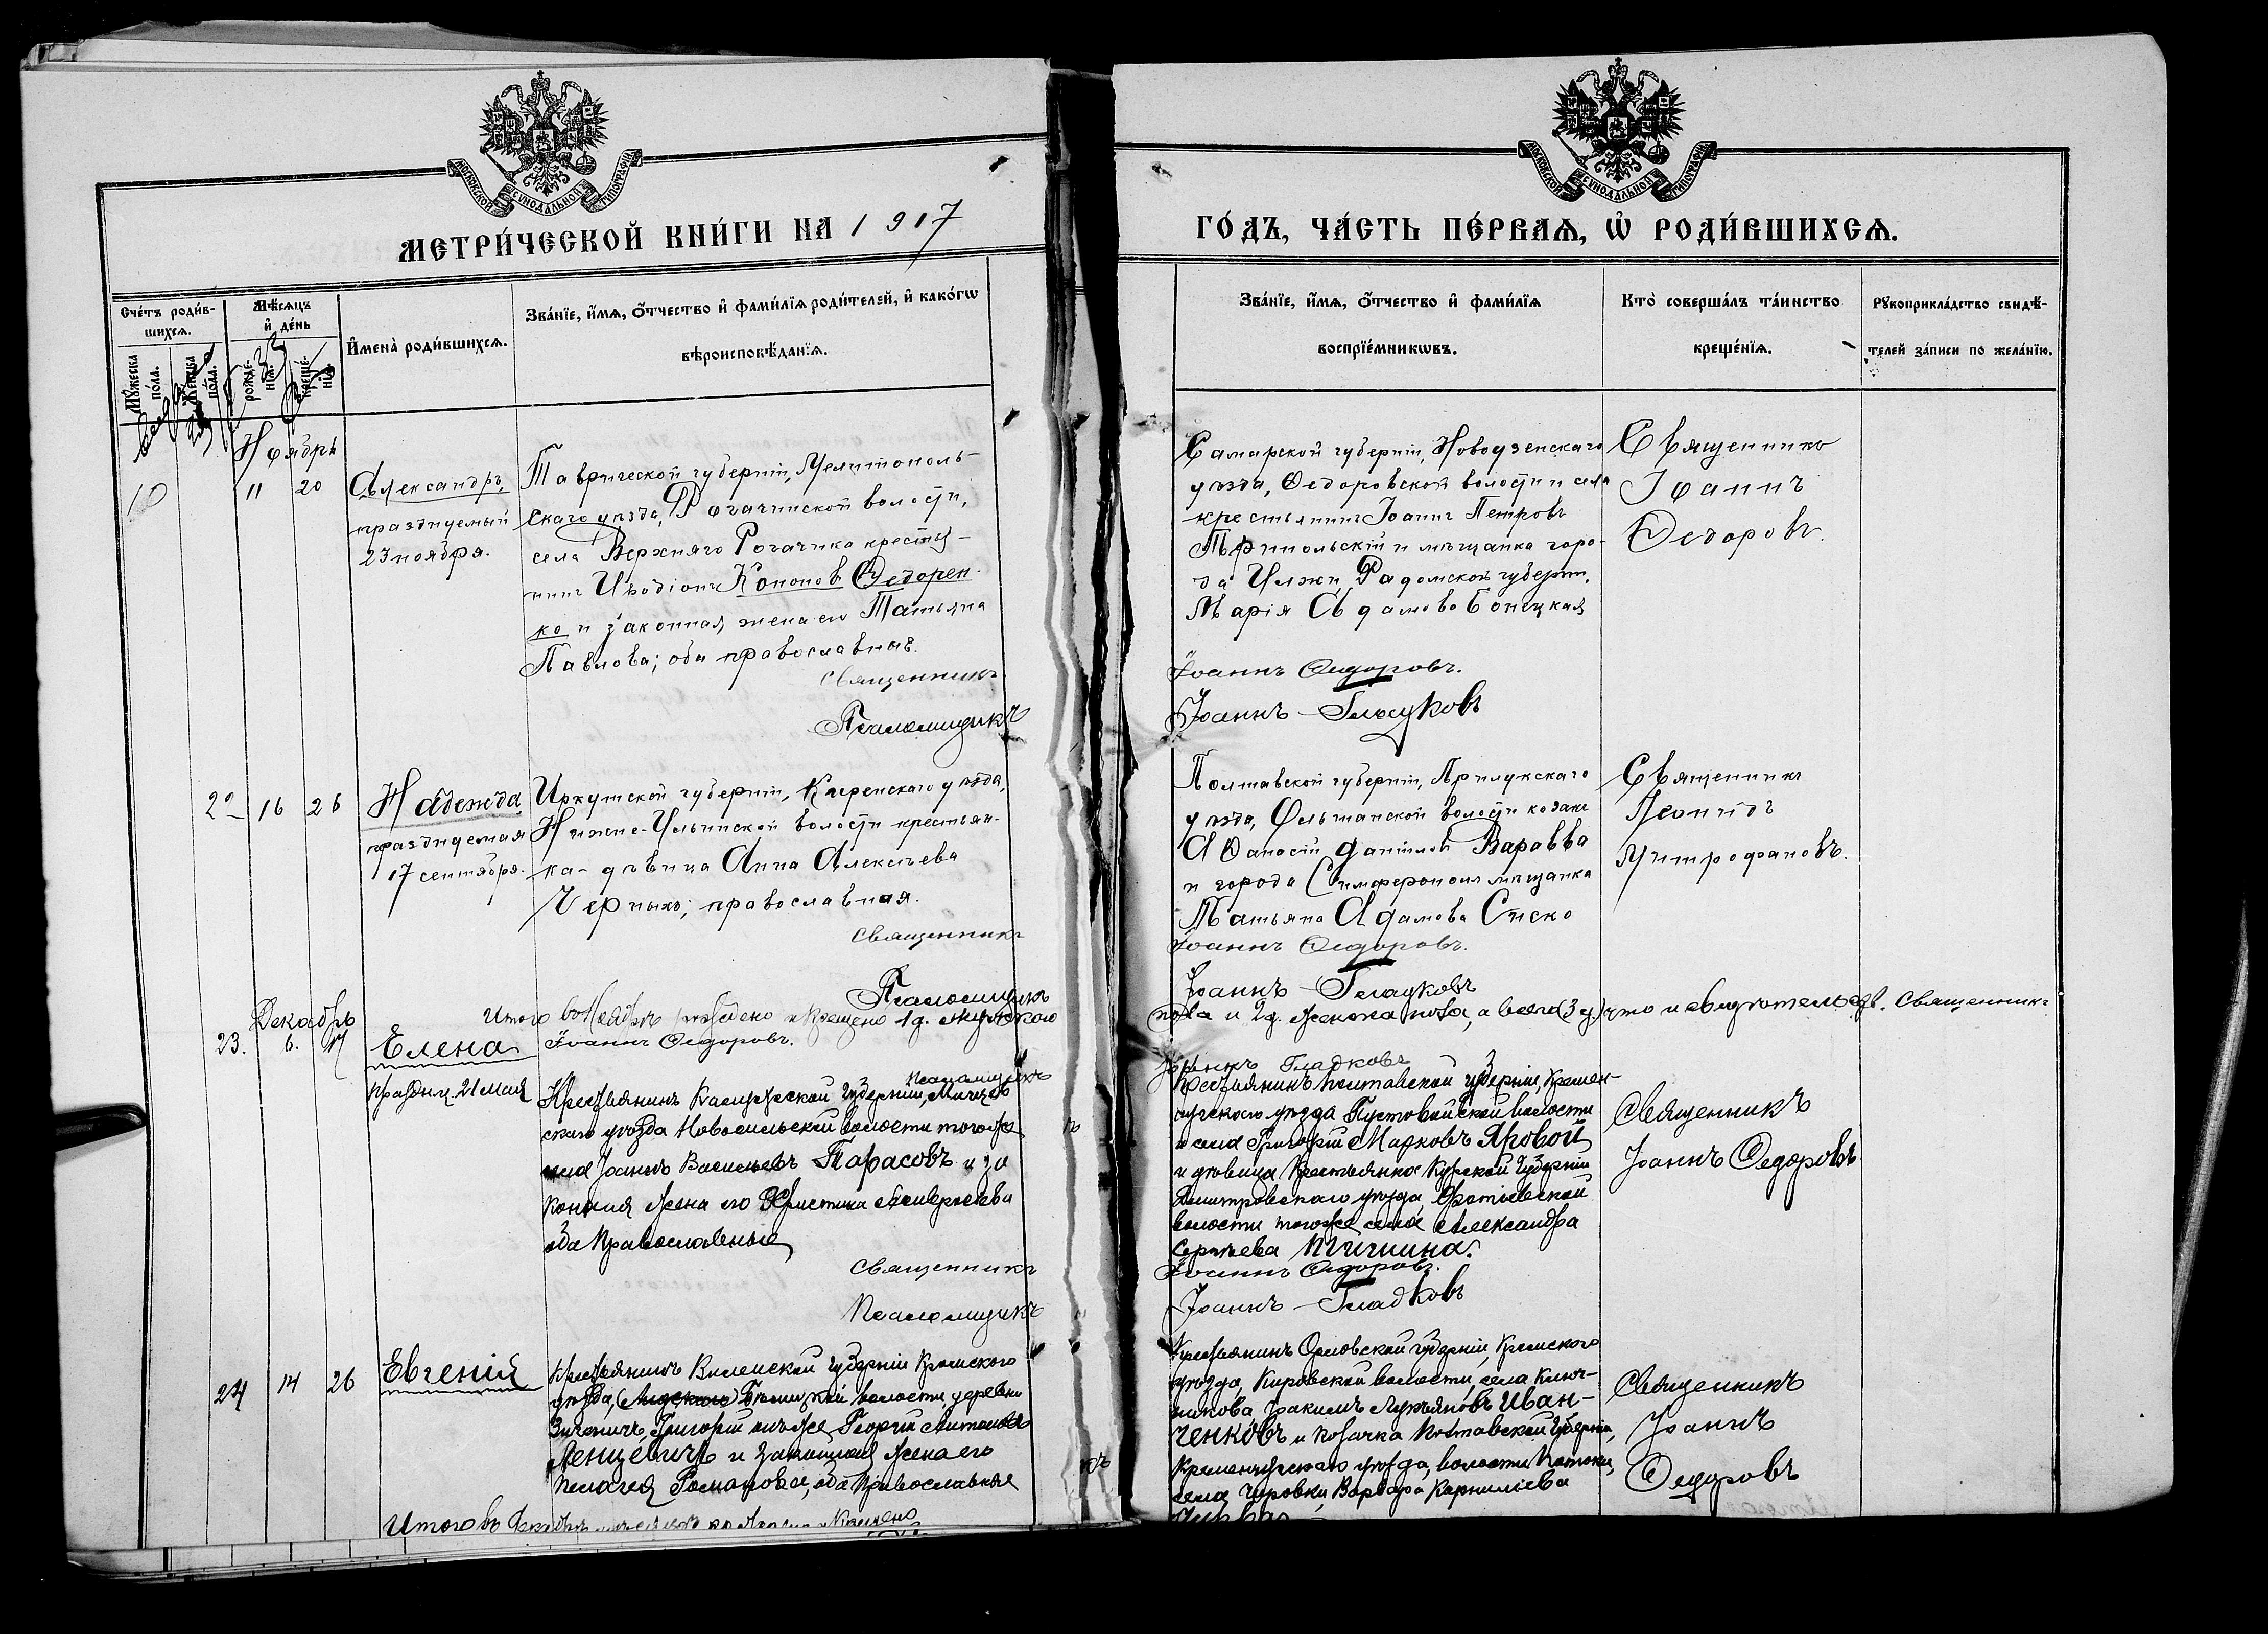 МОСКОВСКОЙ СѴНОДАЛЬНОЙ ТИПОГРАФІИ
МЕТРИ́ЧЕСКОЙ КНИ́ГИ НА 1917
Сче́тъ роди́в-
шихсѧ.
Мѣ́сѧцъ
и҆ де́нь
Мꙋ́жеска по́ла.
Же́нска по́ла.
рожде́-
нїѧ.
креще́-
нїѧ.
И҆мена̀ роди́вшихсѧ.
Зва́нїе, и҆́мѧ, ѻ҆́тчество и҆ фами́лїѧ роди́телей, и҆ како́гѡ
вѣроисповѣ́данїѧ.
Ноябрь
10
11 20
Александръ,
празднуемый
23 ноября.
Таврической губерніи, Мелитополь-
скаго уѣзда, Рогачинской волости,
села Верхняго Рогачика крестья-
нинъ Иродіонъ Кононовъ Федорен-
ко и законная жена его Татьяна
Павлова; оба православные.
Священникъ
Псаломщикъ
22 16 26
Надежда
празднуемая
17 сентября.
Иркутской губерніи, Киренскаго уѣзда,
Нижне-Ильинской волости крестьян-
ка-дѣвица Анна Алексѣева
Черныхъ; православная.
Священникъ
Псаломщикъ
Итого въ Ноябрѣ рождено и крещено 1 д. мужского
Декабрь
23. 6.
Елена
Іоаннъ Ѳедоровъ.
Псаломщикъ
праздн. 21 мая
Крестьянинъ Калужской губерніи,
скаго уѣзда Новосильской волости того же
села Іоаннъ Васильевъ Тарасовъ и за
конная жена его Христина
оба Православные
Священникъ
Псаломщикъ
24 14 26
Евгеній
Крестьянинъ Виленской губерніи
уѣзда, волости, деревни
Григорій онъ же Георгій Антоновъ
Ленцевичъ и законная жена его
Пелагея Романова, оба Православные
Итого въ Декабрѣ
МОСКОВСКОЙ СѴНОДАЛЬНОЙ ТИПОГРАФІИ
ГО́ДЪ, ЧА́СТЬ ПЕ́РВАѦ, Ѡ҆ РОДИ́ВШИХСѦ.
Зва́нїе, и҆́мѧ, ѻ҆́тчество и҆ фами́лїѧ
воспрїе́мникѡвъ.
Кто̀ соверша́лъ та́инство
креще́нїѧ.
Рꙋкоприкла́дство свидѣ́-
телей за́писи по жела́нїю.
Самарской губерніи, Новоузенскаго
уѣзда, Федоровской волости и села
крестьянинъ Іоаннъ Петровъ
Трипольскій и мѣщанка горо-
да Илжи, Радомской губерн.
Марія Адамова Бонецкая
Священникъ
Іоаннъ
Ѳедоровъ.
Іоаннъ Ѳедоровъ.
Іоаннъ Гладковъ
Полтавской губерніи, Прилукскаго
уѣзда, Ольшанской волости козакъ
Аѳанасій Даніиловъ Варавва
и города Симферополя мѣщанка
Татьяна Адамова Стско
Священникъ
Леонидъ
Митрофановъ.
Іоаннъ Ѳедоровъ.
Іоаннъ Гладковъ
пола и 2 д. женска пола, а всего (3 д.) что и свидѣтельств. Священникъ
Іоаннъ Гладковъ
Крестьянинъ Полтавской губерніи, Кремен-
чугскаго уѣзда Пустовойской волости
и села Григорій Марковъ Яровой
и дѣвица Крестьянка Курской губерніи
Дмитровскаго уѣзда, Фатѣевской
волости того же села Александра
Сергѣева
Священникъ
Іоаннъ Ѳедоровъ
Іоаннъ Ѳедоровъ.
Іоаннъ Гладковъ
Крестьянинъ Орловской губерніи, Кромского
уѣзда, Кировской волости, села Ключ-
никова Іоакимъ Лукьяновъ Иван-
ченковъ и козачка Полтавской губерніи,
Кременчугскаго уѣзда, волости Потоки,
села Чировки, Варвара Корнилиева
Священникъ
Іоаннъ
Ѳедоровъ